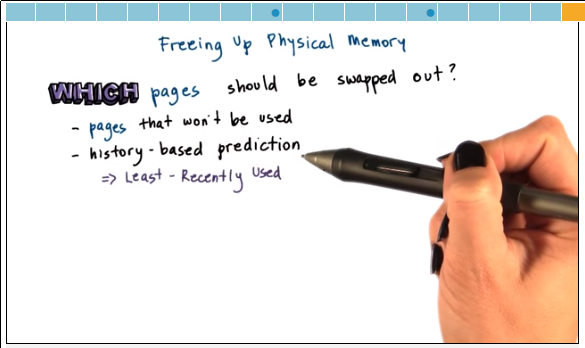 Freeing Up Physical Memory
WHICH pages should be swapped out?
- pages that won't be used
- history-based prediction
=> Least-Recently Used